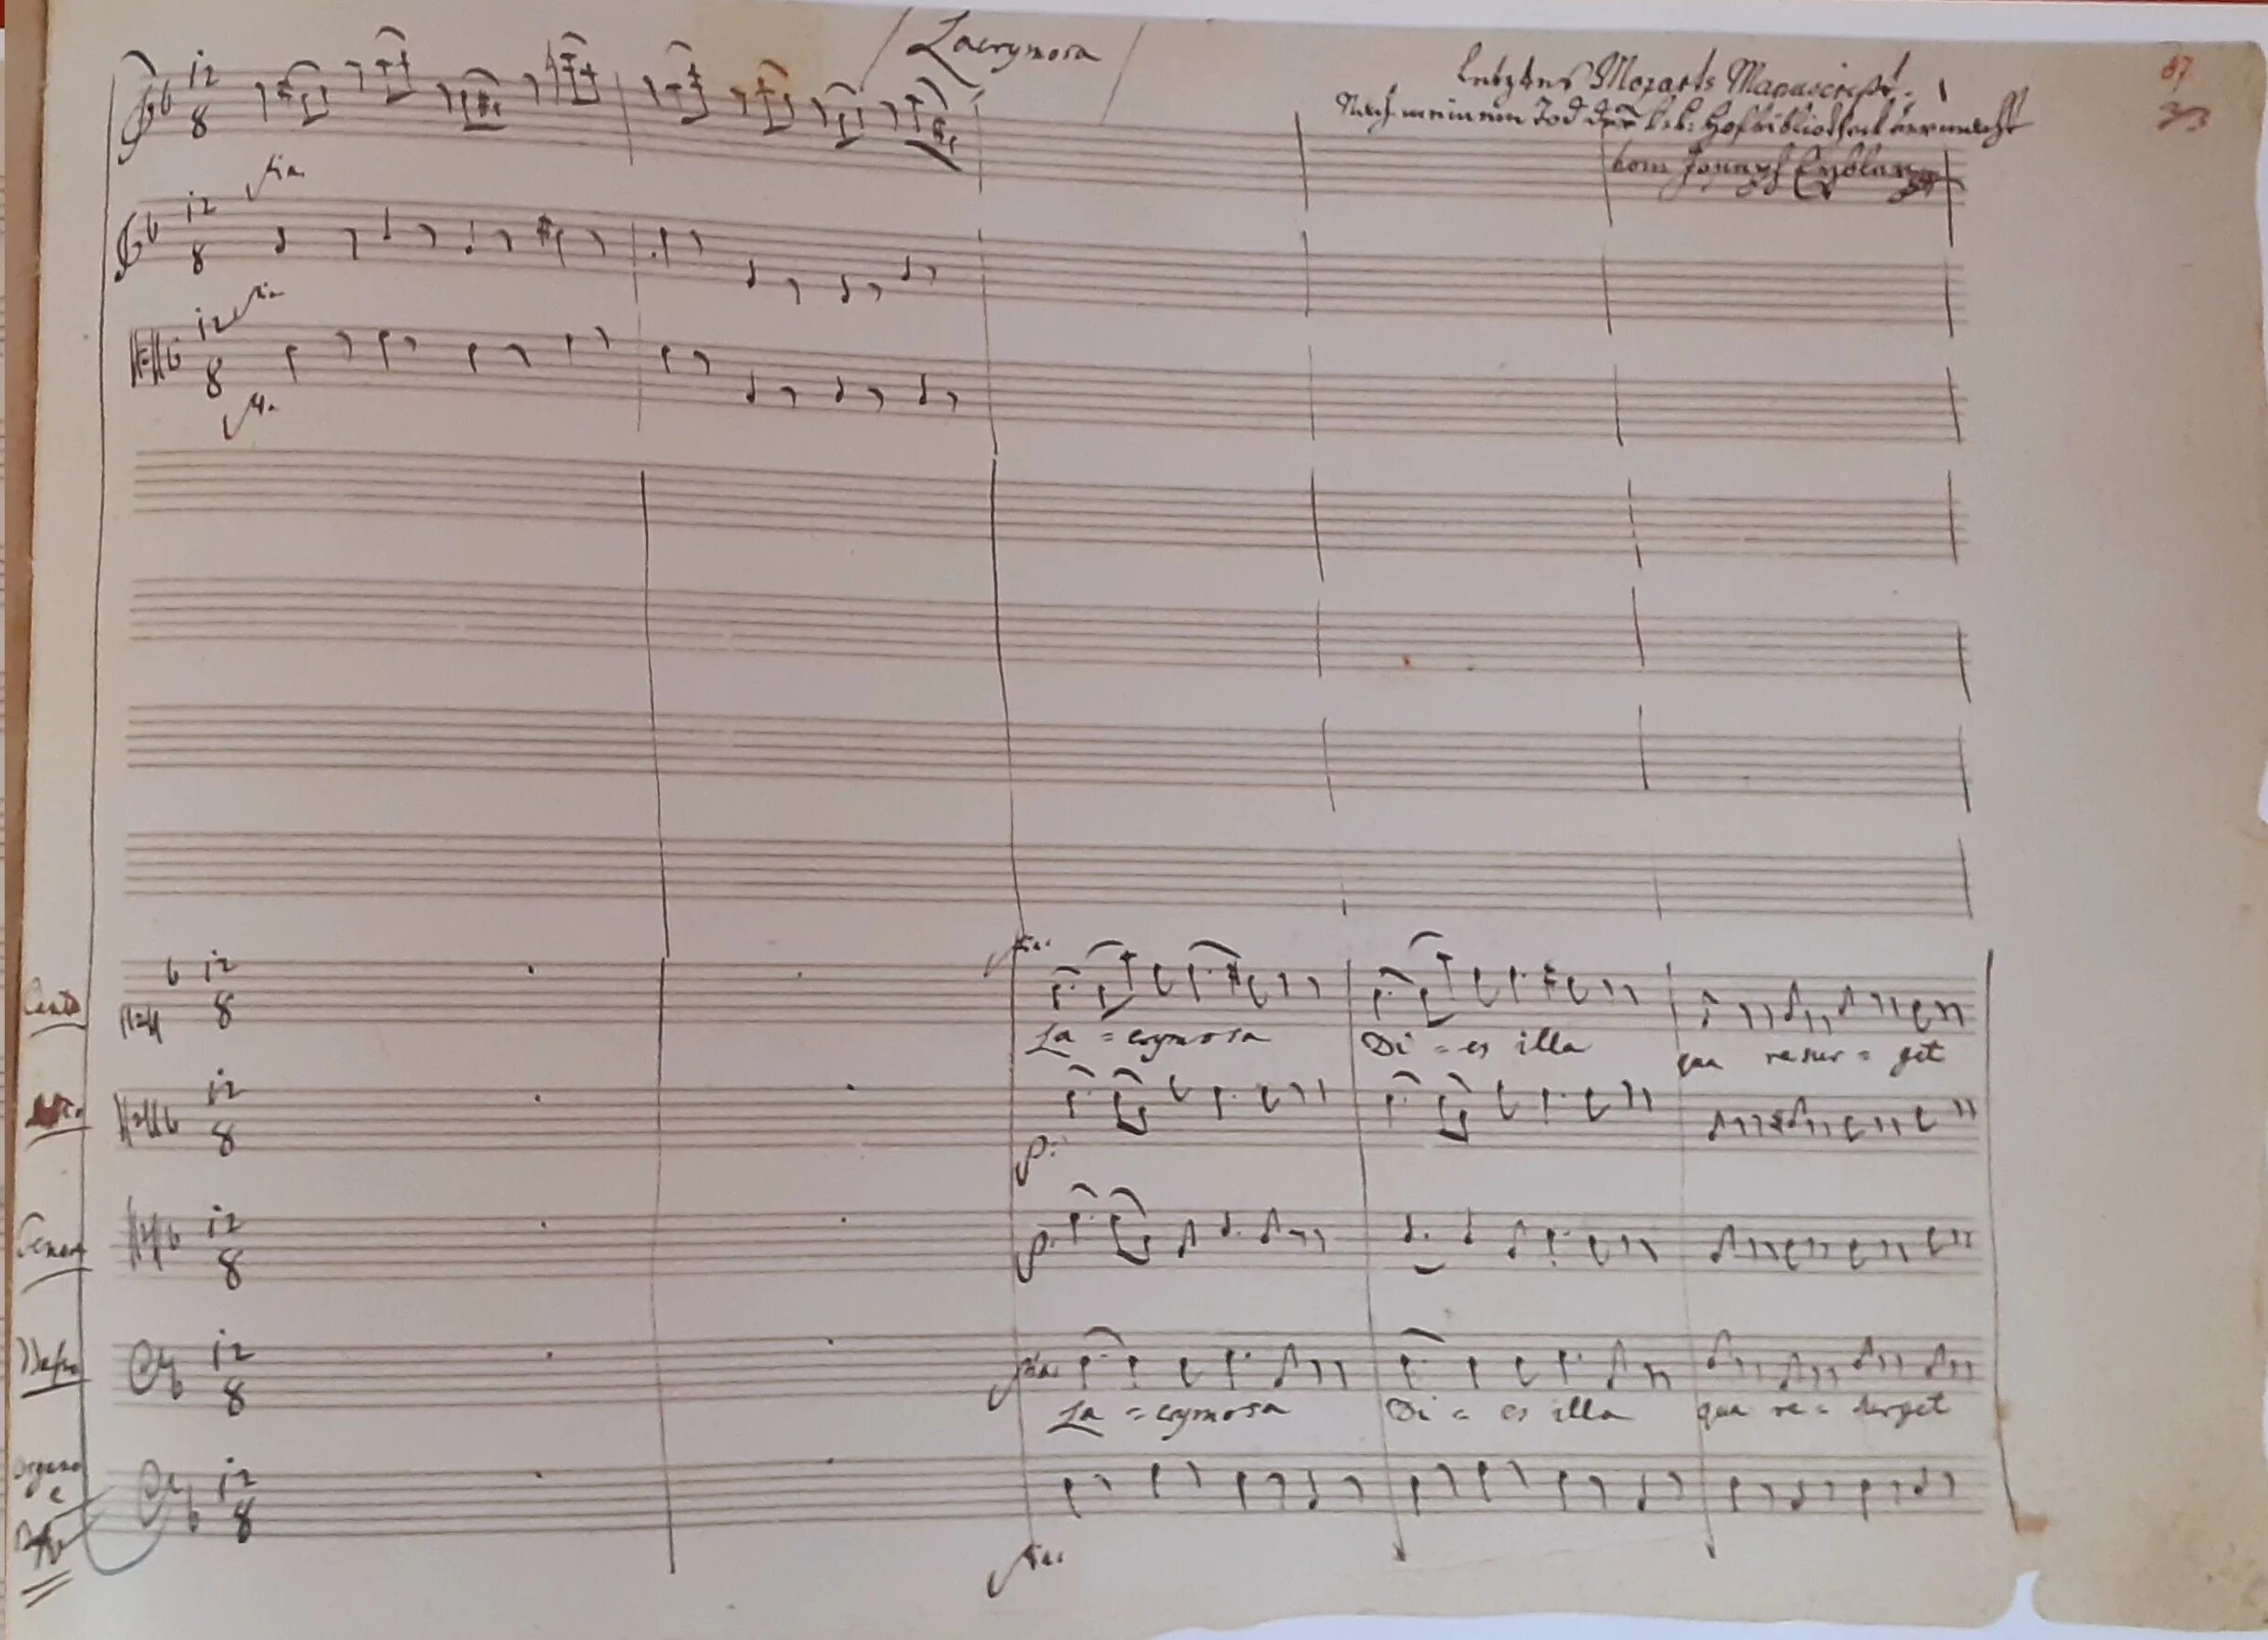 Lacrymosa
Letztes Mozarts Manuscript.
Nach meinem Tod der k. k. Hofbibliothek vermacht
vom Joseph Eybler
87
33
12
8
12
8
12
8
Canto
12
8
La = crymosa Di = es illa qua resur = get
Alto
12
8
p:
Tenore
12
8
p:
Basso
12
8
La = crymosa Di = es illa qua re = surget
Organo
e
12
8